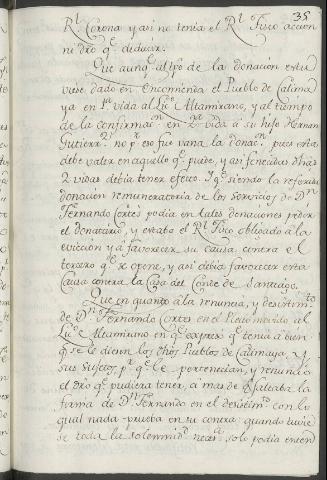 35
Rl. Corona y asi no tenia el Rl. Fisco accion
ni dro qe. deducir.
Que aunqe. al tpo de la donación estu
viese dado en Encomienda el Pueblo de Calima
ya en 1a. vida al Lizdo. Altamirano, y al tiempo
de la confirmasn. en 2a. vida á su hijo Hernan
Gutierrz. no pr. eso fue vana la donacn. pues esta
debe valer en aquello qe. puede, y asi fenecidas dhas
2 vidas debia tener efecto. Y qe. siendo la referida
donación remuneratoria de los servicios de Dn.
Fernando Cortes podia en tales donaciones pedir
el donatario, y estaba el Rl. Fisco obligado á la
evicción y á favorecer su causa contra el
tercero qe. se opone, y asi debia favorecer esta
Causa contra la Casa del Conde de Santiago.
Que en quanto á la renuncia, y desistimto.
de Dn. Fernando Cortes en el Pleito movido al
Lizdo. Altamirano en qe. expresó qe. tenia á bien
qe. se le diesen los dhos Pueblos de Calimaya, y
sus sujetos pr. qe. le pertenecian, y renunció
el dro qe. pudiera tener, á mas de qe. faltaba la
forma de Dn. Fernando en el desistimto. con lo
qual nada prueba en su contra: quando tuvie
se toda la solemnid. neces. solo podia entend